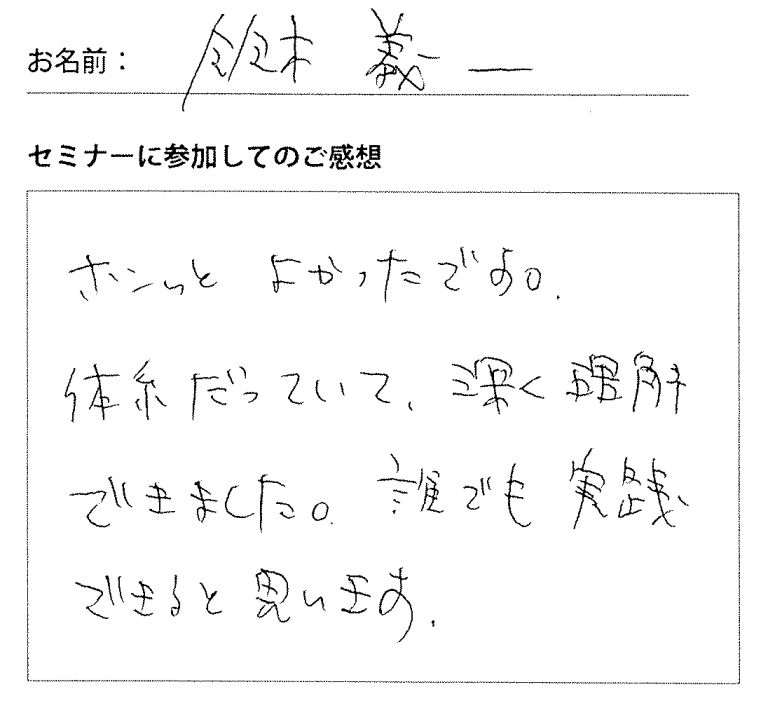 お名前： 鈴木 義一
セミナーに参加してのご感想
ホンっと よかったです。
体系だっていて、深く理解
できました。誰でも実践
できると思います。